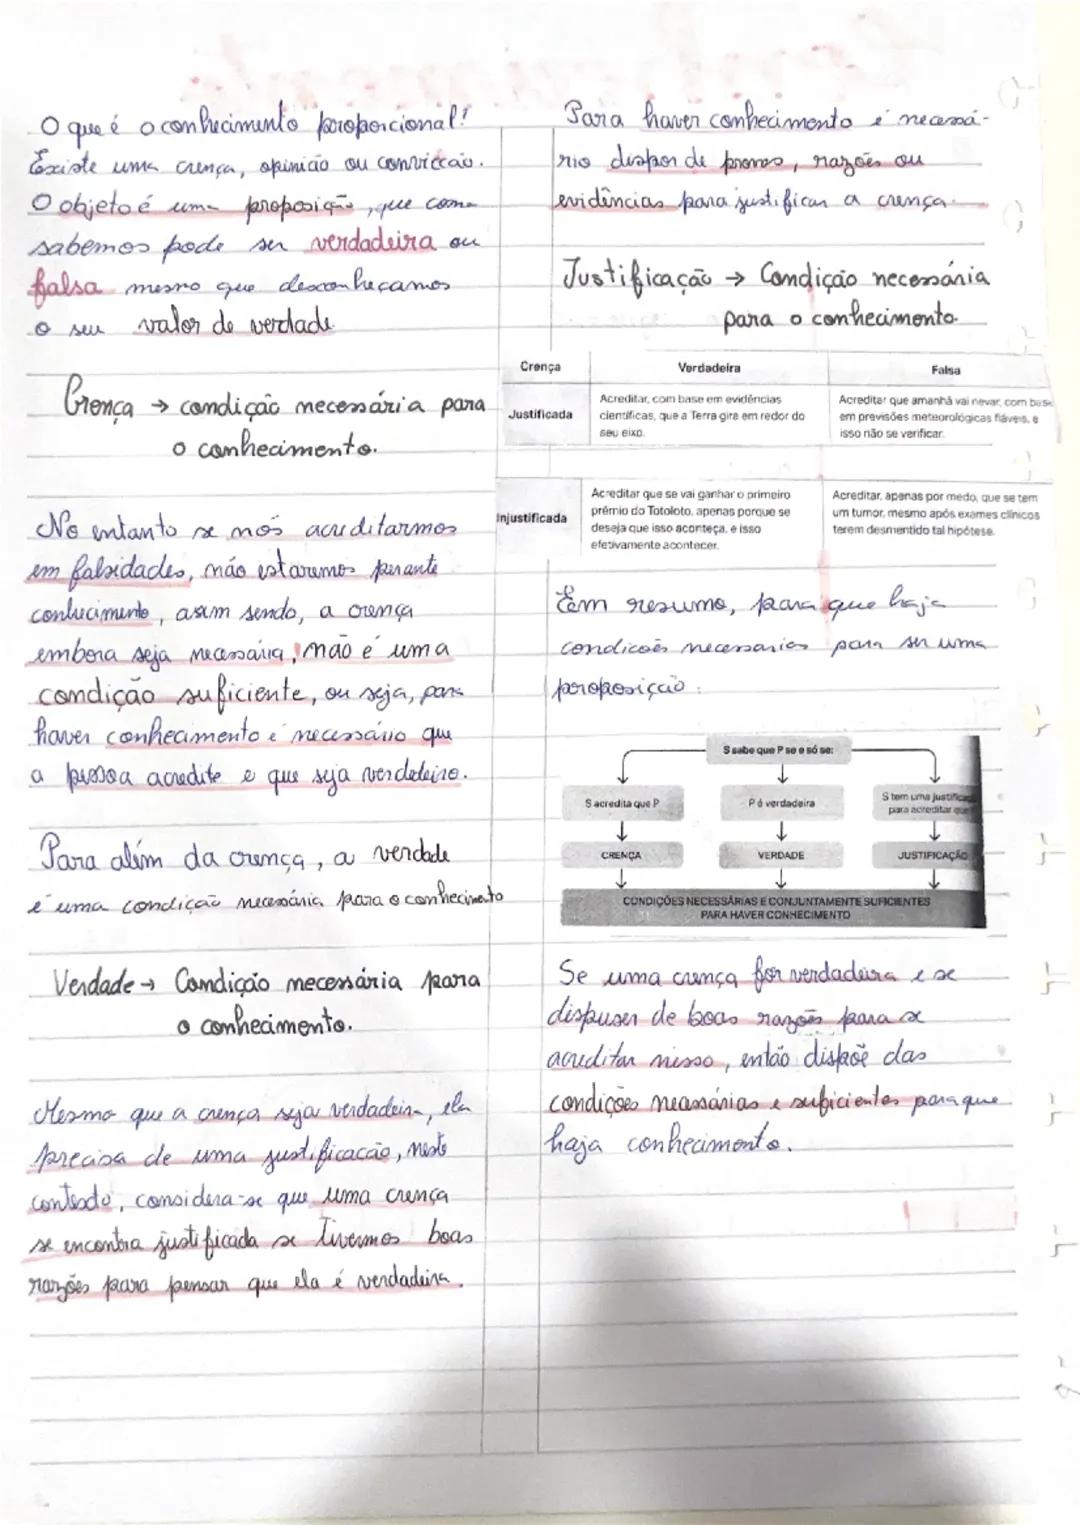 O que é o conhecimento poroporcional!
Existe uma crença, opinicão ou conviccão.
O objeto é uma peroposição, que como
sabemos pode ser verdadeira ou
falsa mesmo que desconheçamos
o seu valor de verdade
Crença → condição necessária para
o conhecimento.
No entanto se nós acreditarmos
em falsidades, não estaremos perante
conhecimento, assim sendo, a crença
embora seja necessária, não é uma
condição suficiente, ou seja, para
haver conhecimento é necessário que
a pessoa acredite e que seja verdadeiro.
Para além da crença, a verdade
é uma condição necessária para o conhecimento
Verdade → Condição necessária para
o conhecimento.
Mesmo que a crença seja verdadeira, ela
precisa de uma justificacão, neste
contexto, considera-se que uma crença
se encontra justificada se tivermos boas
razões para pensar que ela é verdadeira.
Para haver conhecimento é necessá-
rio dispor de provas, razões ou
evidências para justificar a crença.
Justificação → Condição necessária
para o conhecimento.
Crença Verdadeira Falsa
Justificada
Acreditar, com base em evidências
científicas, que a Terra gira em redor do
seu eixo.
Acreditar que amanhã vai nevar, com base
em previsões meteorológicas fiáveis, e
isso não se verificar.
Injustificada
Acreditar que se vai ganhar o primeiro
prémio do Totoloto, apenas porque se
deseja que isso aconteça, e isso
efetivamente acontecer.
Acreditar, apenas por medo, que se tem
um tumor, mesmo após exames clínicos
terem desmentido tal hipótese.
Em resumo, para que haja
condicoẽs necessarias para ser uma
peroposição:
S sabe que P se e só se:
S acredita que P
P é verdadeira
S tem uma justificaç
para acreditar que
CRENÇA
VERDADE
JUSTIFICAÇÃO
CONDIÇÕES NECESSÁRIAS E CONJUNTAMENTE SUFICIENTES
PARA HAVER CONHECIMENTO
Se uma crença for verdadeira e se
dispuser de boas razões para se
acreditar nisso, então dispõe das
condições necessárias e suficientes para que
haja conhecimento.